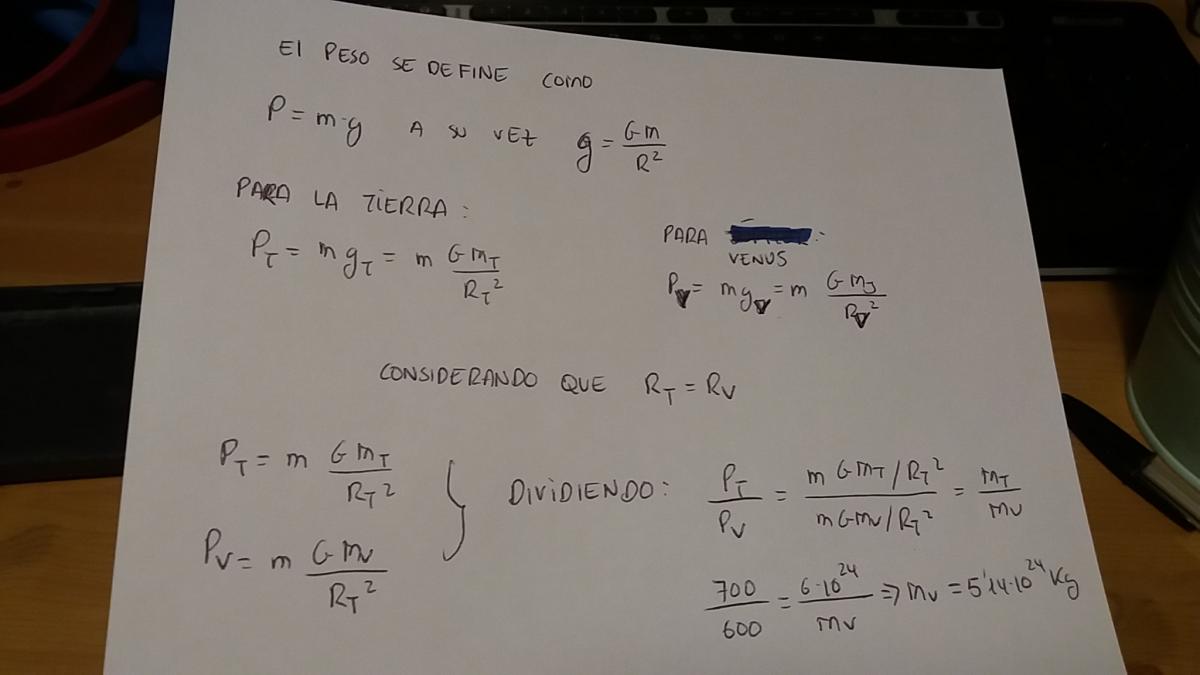 El PESO SE DEFINE COMO
P = m·g A SU VEZ g = Gm / R²
PARA LA TIERRA:
P_T = m g_T = m G m_T / R_T²
PARA :
VENUS
P_V = m g_V = m G m_J / R_V²
CONSIDERANDO QUE R_T = R_V
P_T = m G m_T / R_T²
P_V = m G m_V / R_T²
} DIVIDIENDO: P_T / P_V = m G m_T / R_T² / m G m_V / R_T² = m_T / m_V
700 / 600 = 6·10²⁴ / m_V ⇒ m_V = 5'14·10²⁴ Kg